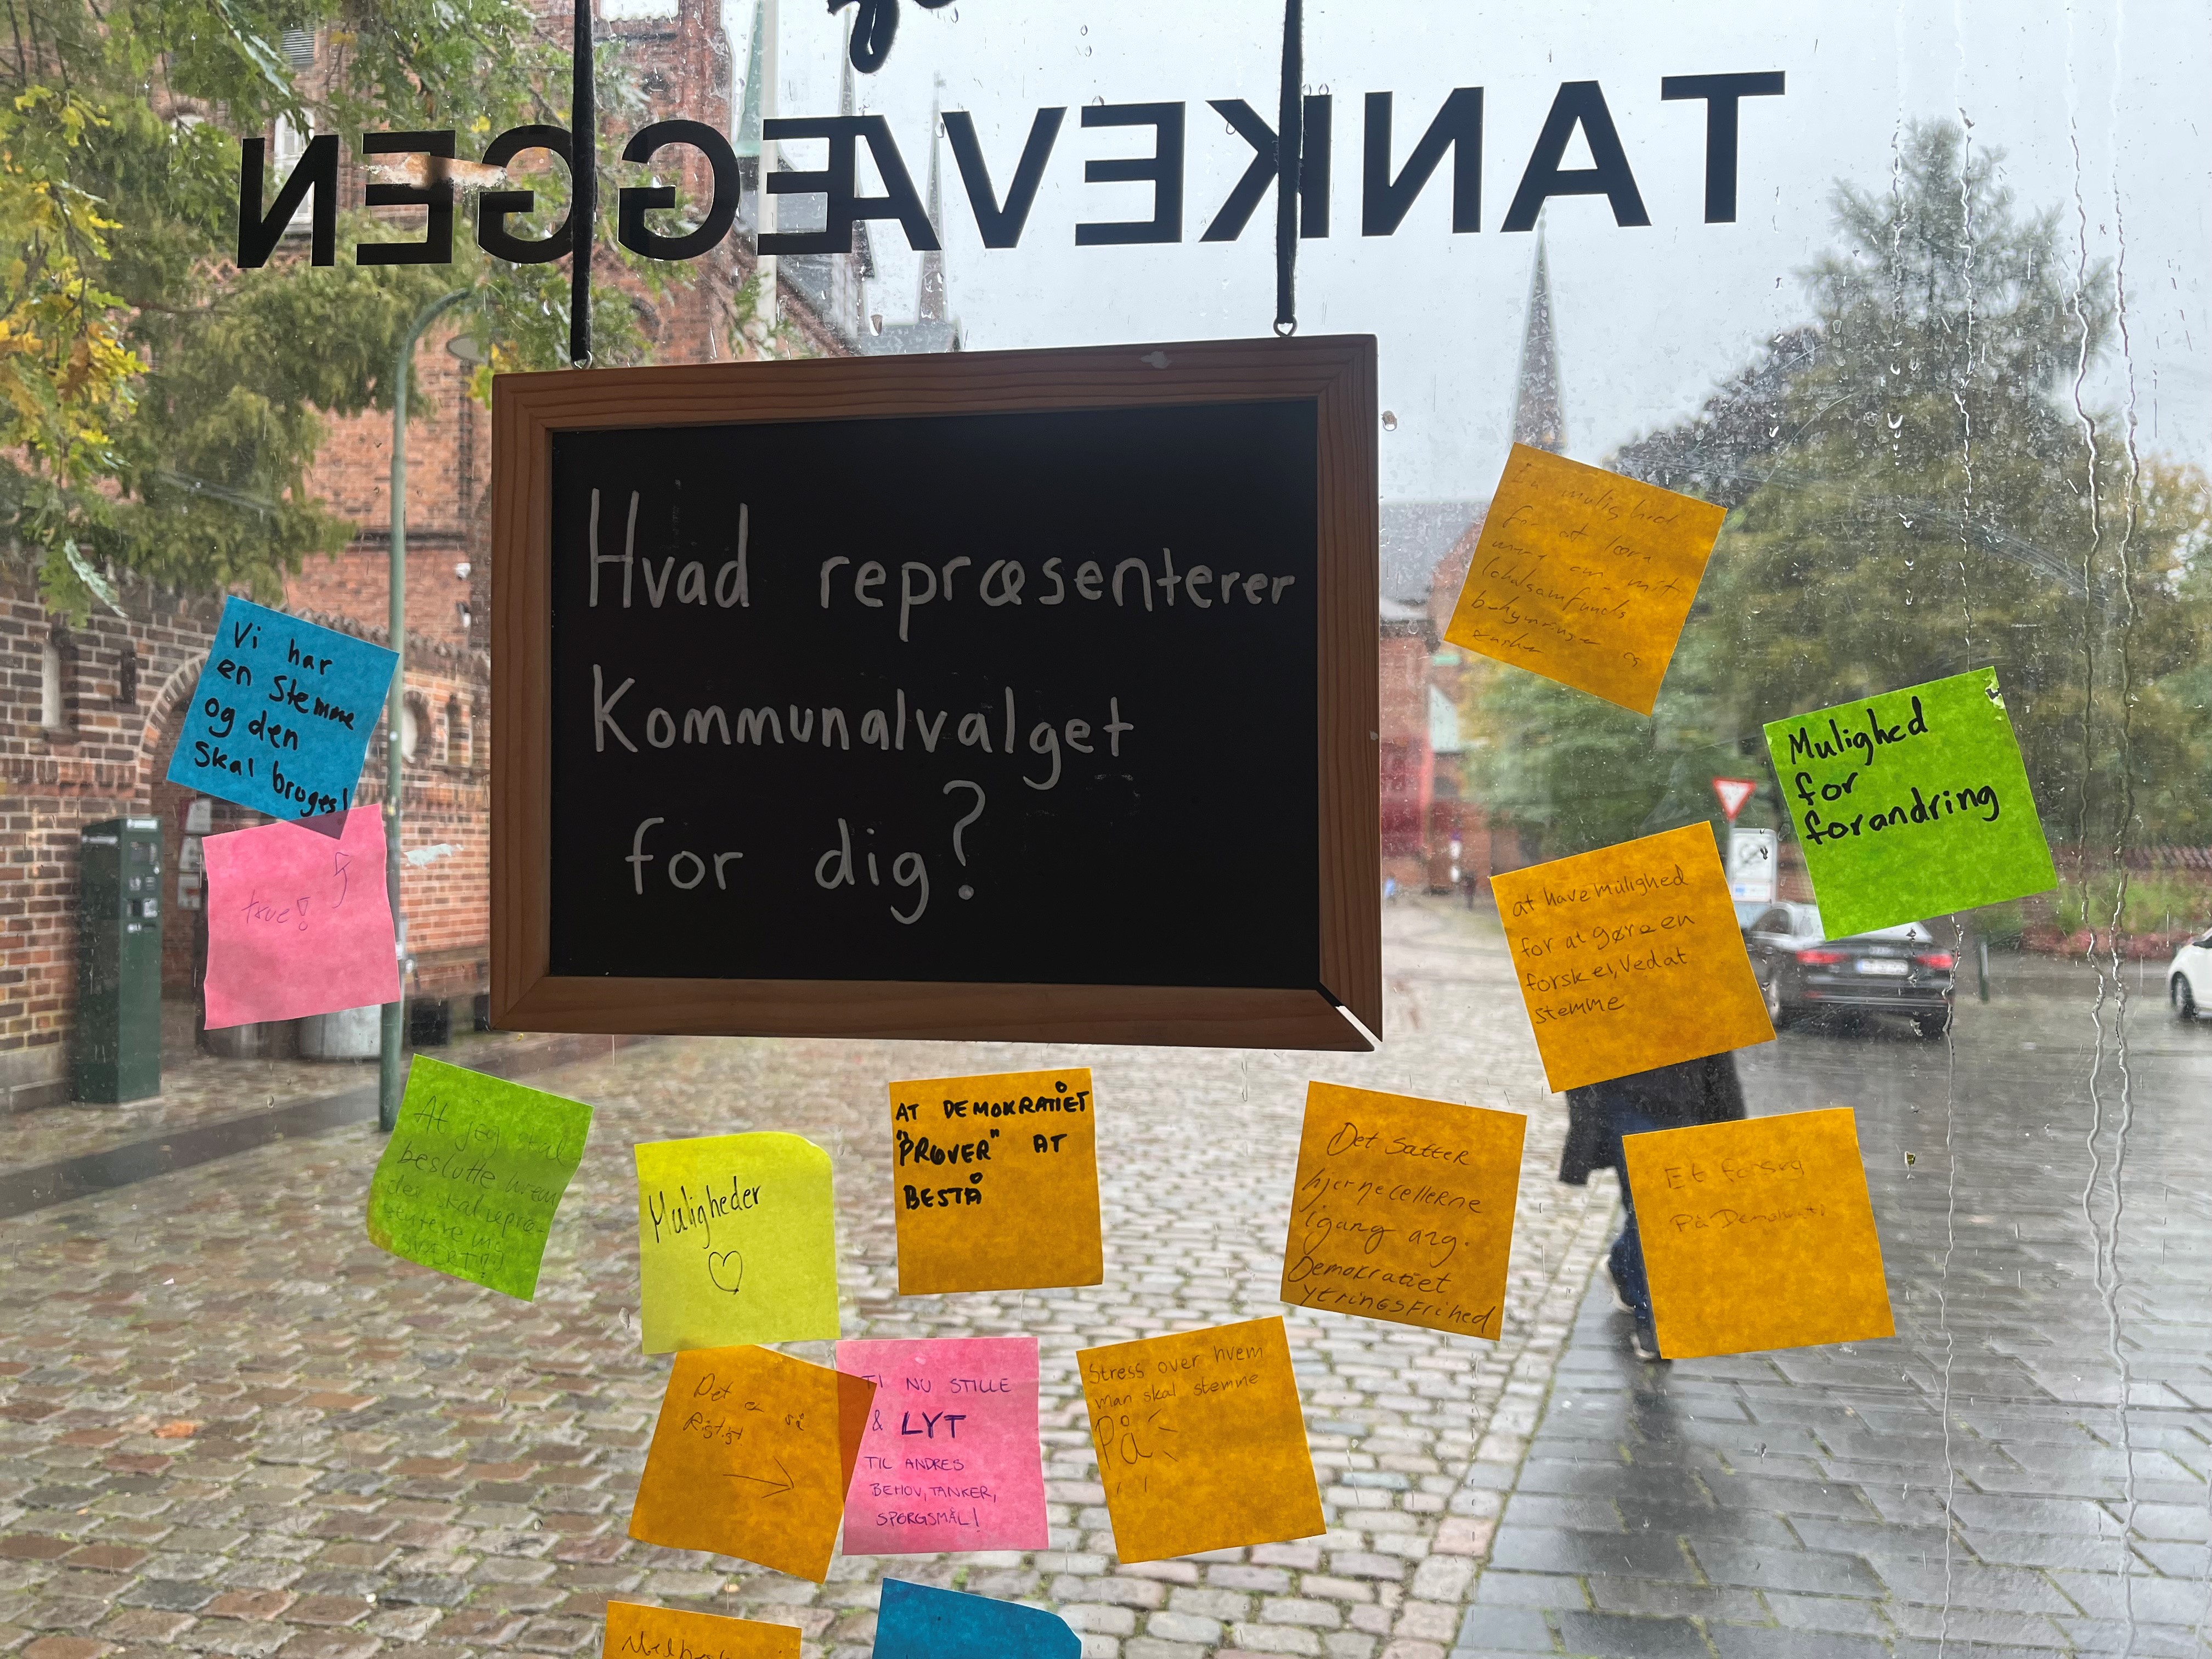 TANKEVÆGGEN
Hvad repræsenterer
Kommunalvalget
for dig?
En mulighed
for at lære
mere om mit
lokalsamfunds
bekymringer og
ønsker
Vi har
en stemme
og den
skal bruges!
true!
Mulighed
for
forandring
at have mulighed
for at gøre en
forskel, ved at
stemme
At jeg skal
beslutte hvem
der skal repræ-
sentere mig
SVÆRT!
Muligheder
AT DEMOKRATIET
"PRØVER" AT
BESTÅ
Det sætter
hjernecellerne
igang ang.
Demokratiet
Ytringsfrihed
Et forsøg
På Demokrati
Det er så
Rigtigt
TI NU STILLE
& LYT
TIL ANDRES
BEHOV, TANKER,
SPØRGSMÅL!
Stress over hvem
man skal stemme
På